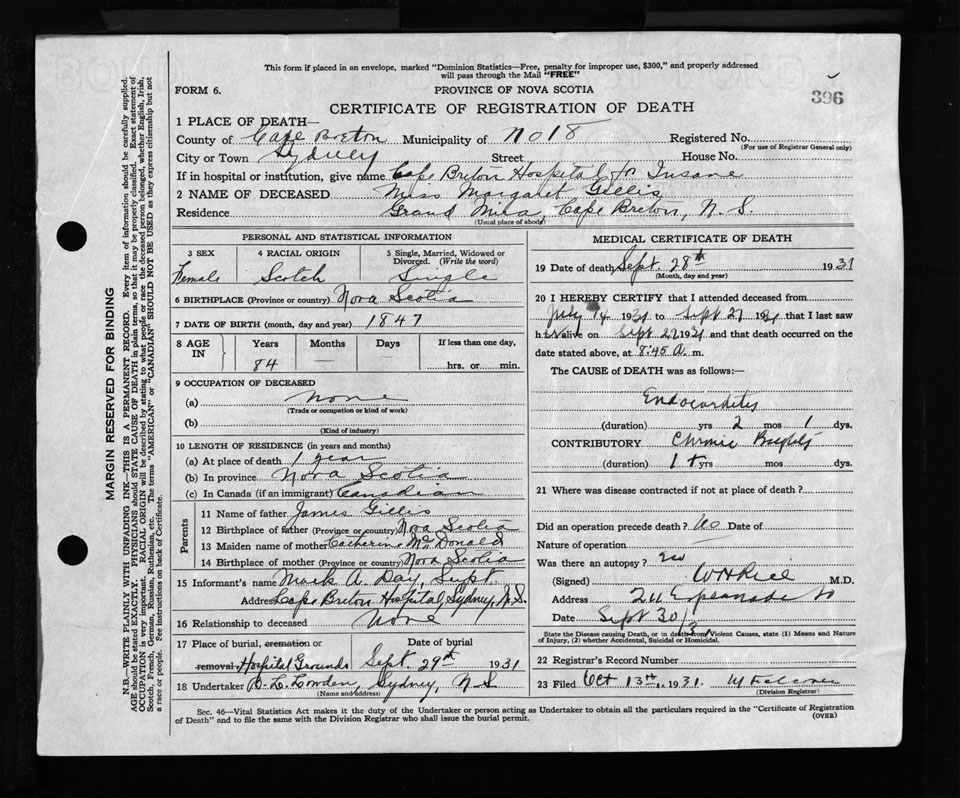 This form if placed in an envelope, marked "Dominion Statistics—Free, penalty for improper use, $300," and properly addressed
will pass through the Mail "FREE"
396
FORM 6.
PROVINCE OF NOVA SCOTIA
CERTIFICATE OF REGISTRATION OF DEATH
1 PLACE OF DEATH—
County of Cape Breton Municipality of No 18 Registered No.
(For use of Registrar General only)
City or Town Sydney Street House No.
If in hospital or institution, give name Cape Breton Hospital for Insane
2 NAME OF DECEASED Miss Margaret Gillis
Residence Grand Mira, Cape Breton, N. S.
(Usual place of abode)
PERSONAL AND STATISTICAL INFORMATION
3 SEX 4 RACIAL ORIGIN 5 Single, Married, Widowed or
Divorced. (Write the word)
Female Scotch Single
6 BIRTHPLACE (Province or country) Nova Scotia
7 DATE OF BIRTH (month, day and year) 1847
8 AGE IN Years Months Days If less than one day,
84 — — hrs. or min.
9 OCCUPATION OF DECEASED
(a) none
(Trade or occupation or kind of work)
(b)
(Kind of industry)
10 LENGTH OF RESIDENCE (in years and months)
(a) At place of death 1 year
(b) In province Nova Scotia
(c) In Canada (if an immigrant) Canadian
Parents
11 Name of father James Gillis
12 Birthplace of father (Province or country) Nova Scotia
13 Maiden name of mother Catherine McDonald
14 Birthplace of mother (Province or country) Nova Scotia
15 Informant's name Mark A. Day, Supt.
Address Cape Breton Hospital, Sydney, N.S.
16 Relationship to deceased none
17 Place of burial, cremation or Date of burial
removal, Hospital Grounds Sept. 29th 1931
18 Undertaker Sydney, N S
(Name and address)
MEDICAL CERTIFICATE OF DEATH
19 Date of death Sept. 28th 1931
(Month, day and year)
20 I HEREBY CERTIFY that I attended deceased from
July 14 1931 to Sept 27 1931 that I last saw
her alive on Sept 27 1931 and that death occurred on the
date stated above, at 8:45 a. m.
The CAUSE of DEATH was as follows:—
Endocarditis
(duration) yrs 2 mos 1 dys.
CONTRIBUTORY Chronic Brights
(duration) 1+ yrs mos dys.
21 Where was disease contracted if not at place of death?
Did an operation precede death? No Date of
Nature of operation
Was there an autopsy? no
(Signed) M.D.
Address
Date Sept 30/31
State the Disease causing Death, or in death from Violent Causes, state (1) Means and Nature
of Injury, (2) whether Accidental, Suicidal or Homicidal.
22 Registrar's Record Number
23 Filed Oct 13th, 1931.
(Division Registrar)
Sec. 46—Vital Statistics Act makes it the duty of the Undertaker or person acting as Undertaker to obtain all the particulars required in the "Certificate of Registration
of Death" and to file the same with the Division Registrar who shall issue the burial permit.
(OVER)
MARGIN RESERVED FOR BINDING
N.B.—WRITE PLAINLY WITH UNFADING INK—THIS IS A PERMANENT RECORD. Every item of information should be carefully supplied.
AGE should be stated EXACTLY. PHYSICIANS should STATE CAUSE OF DEATH in plain terms, so that it may be properly classified. Exact statement of
OCCUPATION is very important. RACIAL ORIGIN will be described by stating to what people or race the deceased person belonged, whether English, Irish,
Scotch, French, German, Russian, Ruthenian, etc. The terms "AMERICAN" or "CANADIAN" SHOULD NOT BE USED as they express citizenship but not
a race or people. See instructions on back of Certificate.